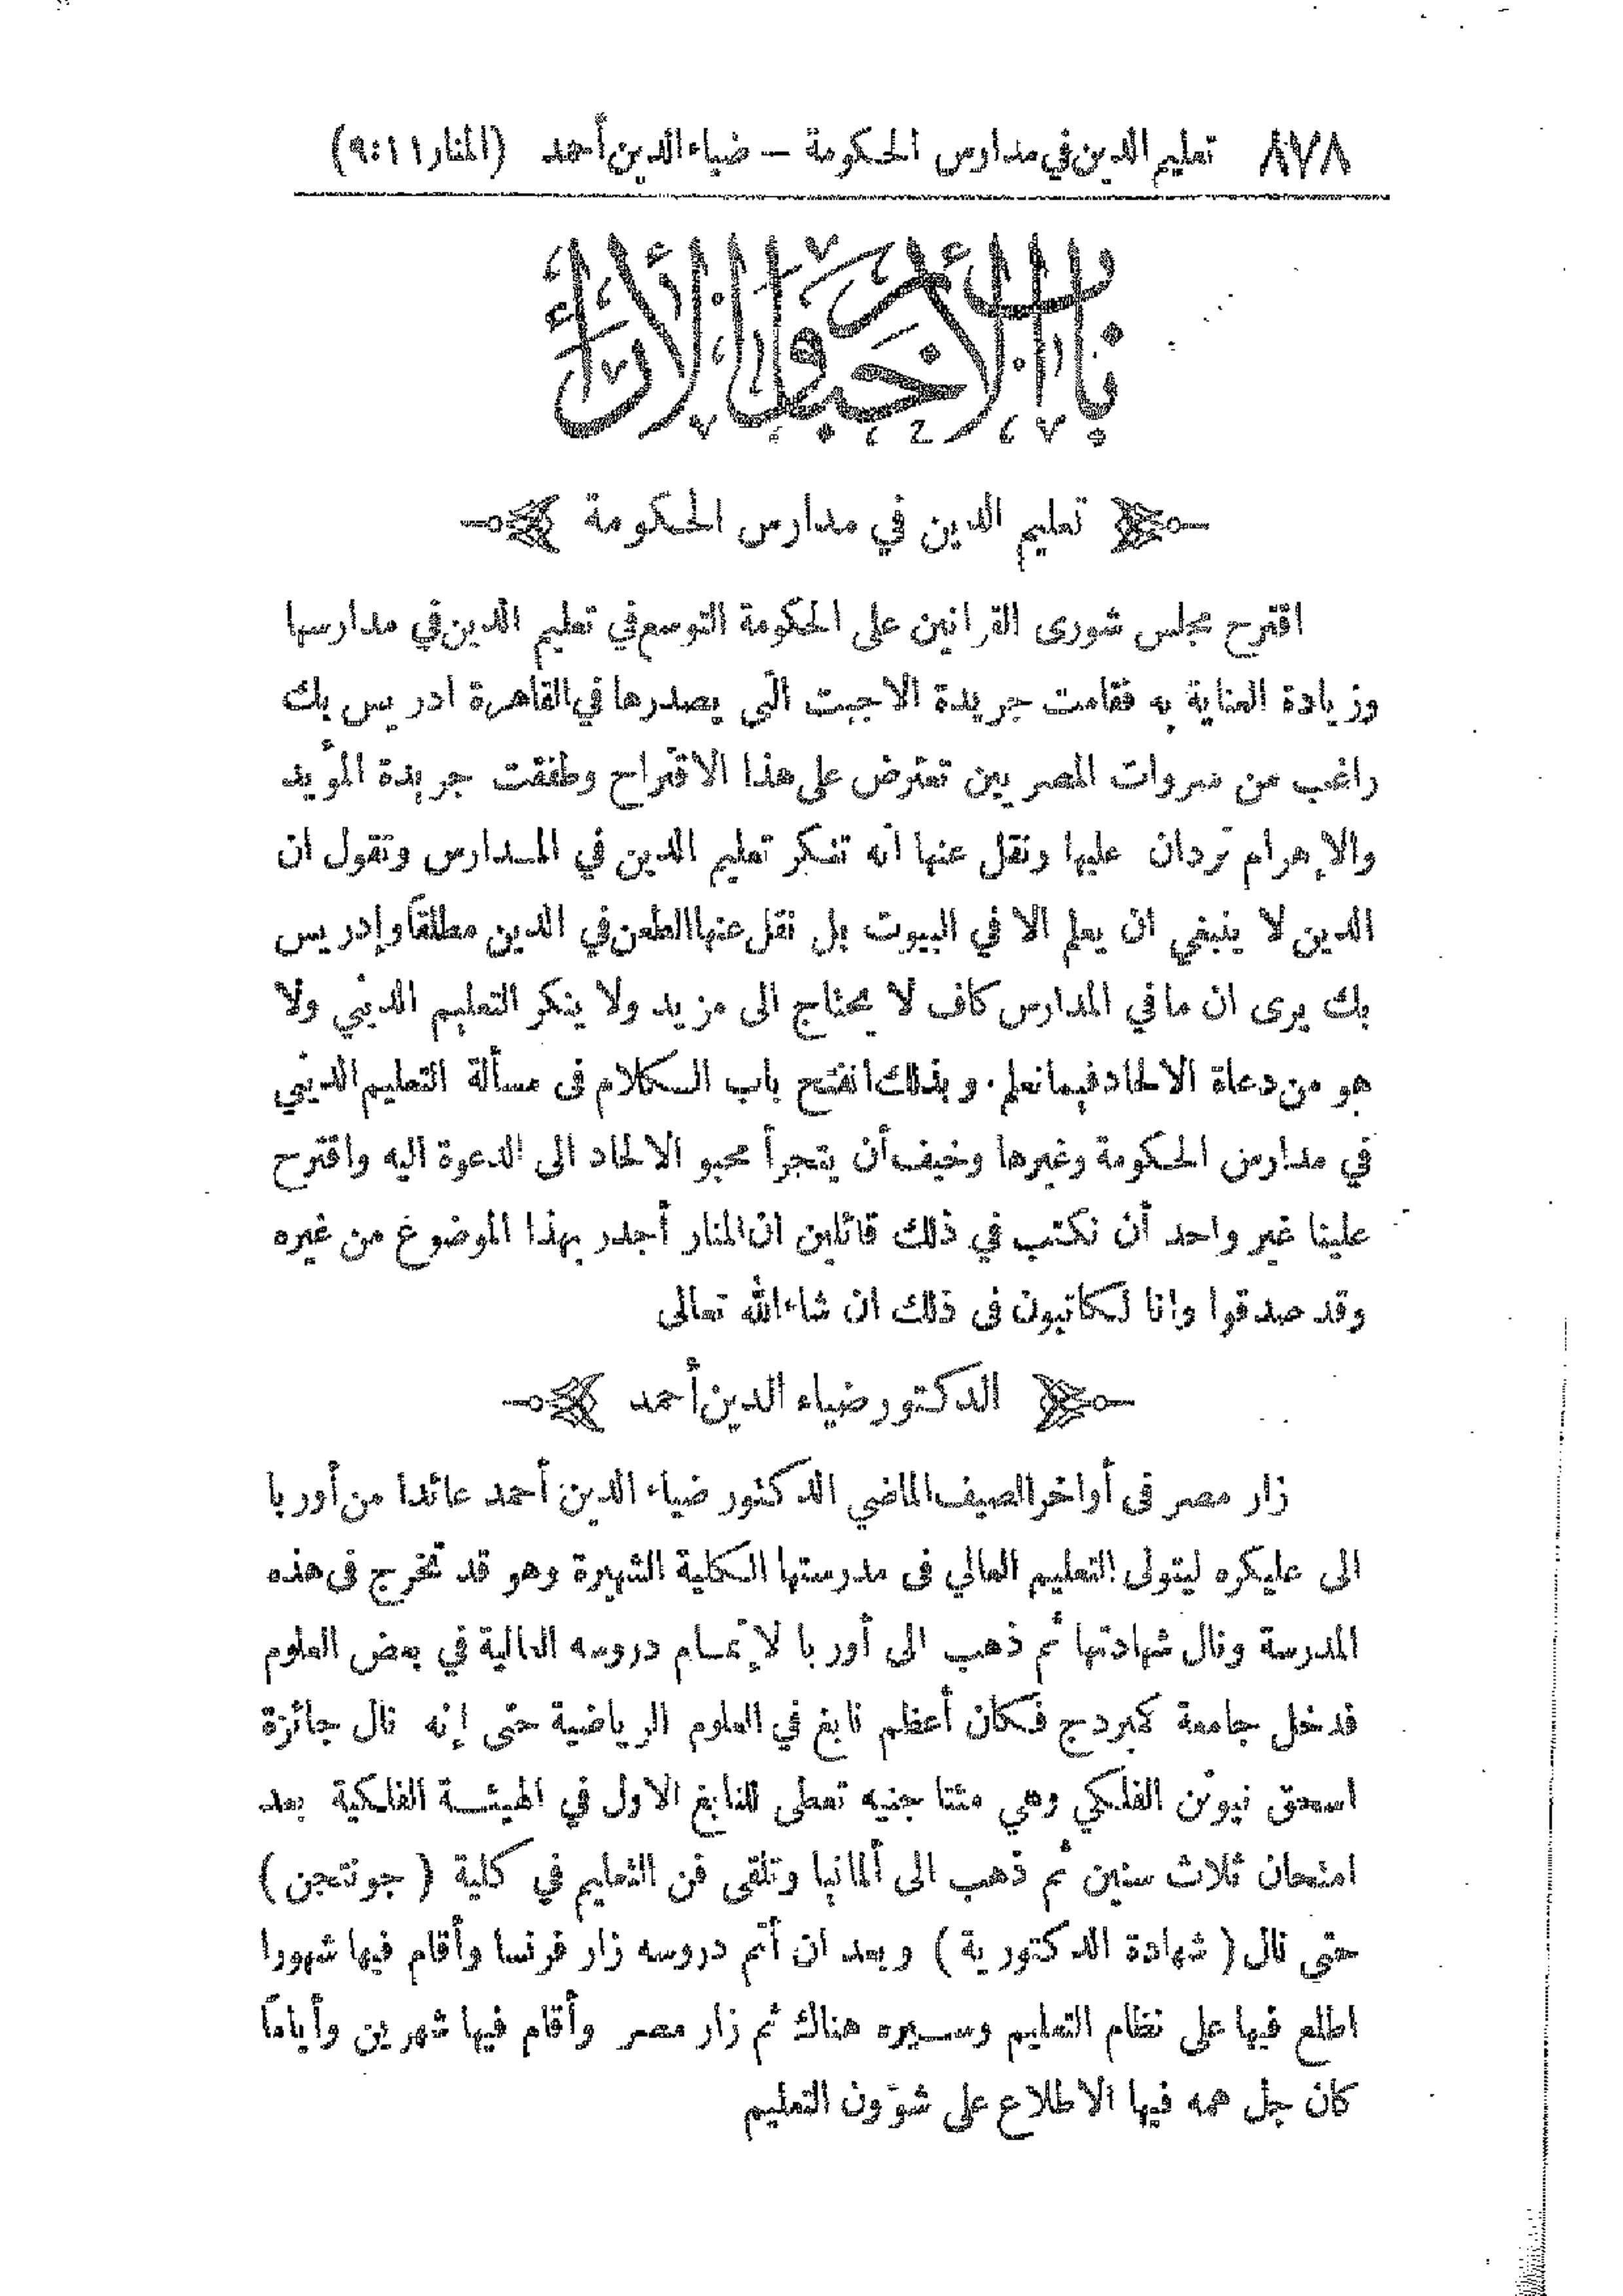 ٨٧٨ تعليم الدين في مدارس الحكومة – ضياء الدين أحمد (المنار ١١:٩)
باب الأخبار والآراء
تعليم الدين في مدارس الحكومة
اقترح مجلس شورى القوانين على الحكومة التوسع في تعليم الدين في مدارسها
وزيادة العناية به فقامت جريدة الاجبت التي يصدرها في القاهرة ادريس بك
راغب من سروات المصريين تعترض على هذا الاقتراح وطفقت جريدة المؤيد
والاهرام تردان عليها ونقل عنها انه تنكر تعليم الدين في المدارس وتقول ان
الدين لا ينبغي ان يعلم الا في البيوت بل نقل عنها الطعن في الدين مطلقاً وإدريس
بك يرى ان ما في المدارس كاف لا يحتاج الى مزيد ولا ينكر التعليم الديني ولا
هو من دعاة الالحاد فيما نعلم. وبذلك انفتح باب الكلام في مسألة التعليم الديني
في مدارس الحكومة وغيرها وخيف أن يتجرأ محبو الالحاد الى الدعوة اليه واقترح
علينا غير واحد أن نكتب في ذلك قائلين ان المنار أجدر بهذا الموضوع من غيره
وقد صدقوا وانا لكاتبون في ذلك ان شاء الله تعالى
الدكتور ضياء الدين أحمد
زار مصر في أواخر الصيف الماضي الدكتور ضياء الدين أحمد عائدا من أوربا
الى عليكره ليتولى التعليم العالي في مدرستها الكلية الشهيرة وهو قد تخرج في هذه
المدرسة ونال شهادتها ثم ذهب الى أوربا لإتمام دروسه العالية في بعض العلوم
فدخل جامعة كمبردج فكان أعظم نابغ في العلوم الرياضية حتى إنه نال جائزة
اسحق نيوتن الفلكي وهي مئتا جنيه تعطى للنابغ الاول في الهيئة الفلكية بعد
امتحان ثلاث سنين ثم ذهب الى ألمانيا وتلقى فن التعليم في كلية (جوتنجن)
حتى نال (شهادة الدكتورية) وبعد ان أتم دروسه زار فرنسا وأقام فيها شهورا
اطلع فيها على نظام التعليم وسيره هناك ثم زار مصر وأقام فيها شهرين وأياماً
كان جل همه فيها الاطلاع على شؤون التعليم